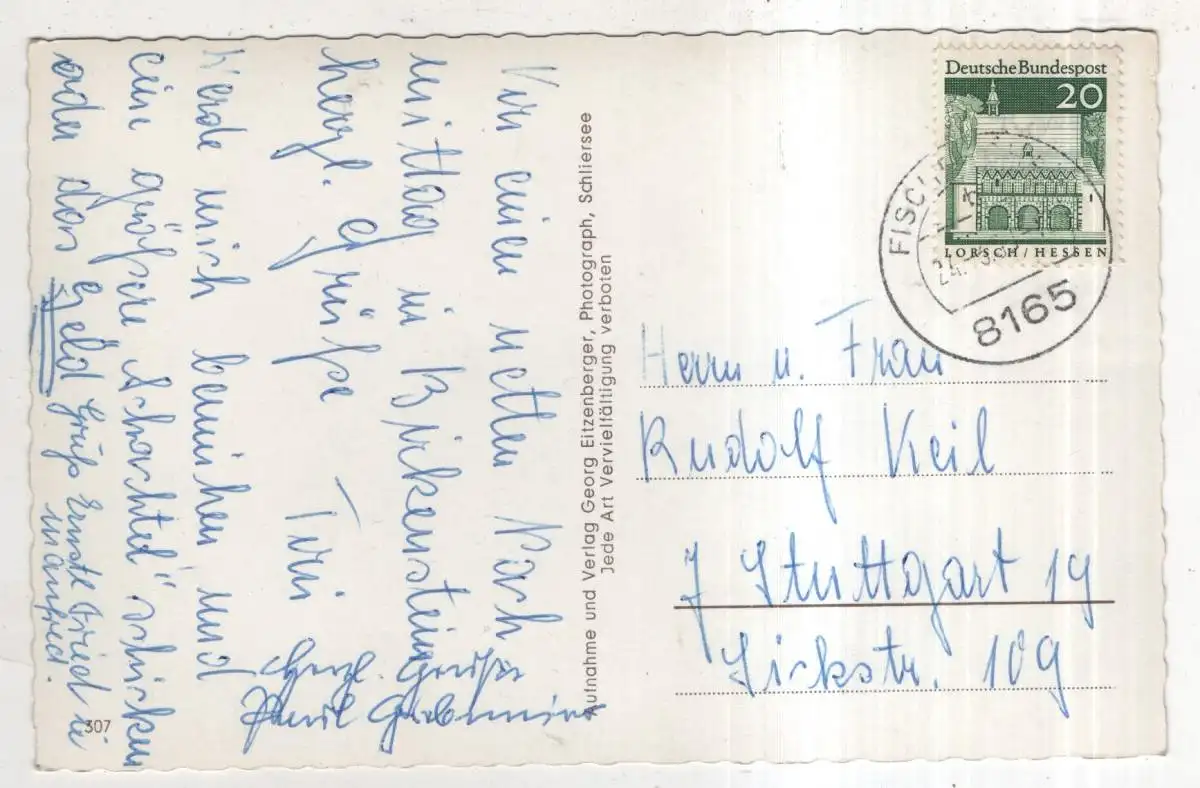 Von einen netten Nach
mittag in Birkenstein
herzl. Grüße
Toni
Herzl. Grüße
Werde mich bemühen und
ein größere Schachtel" schicken
oder das Geld
Gruß
Manfred.
307
Aufnahme und Verlag Georg Eitzenberger, Photograph, Schliersee
Jede Art Vervielfältigung verboten
Deutsche Bundespost
20
LORSCH/HESSEN
8165
Herrn u. Frau
Rudolf Keil
7 Stuttgart 19
109